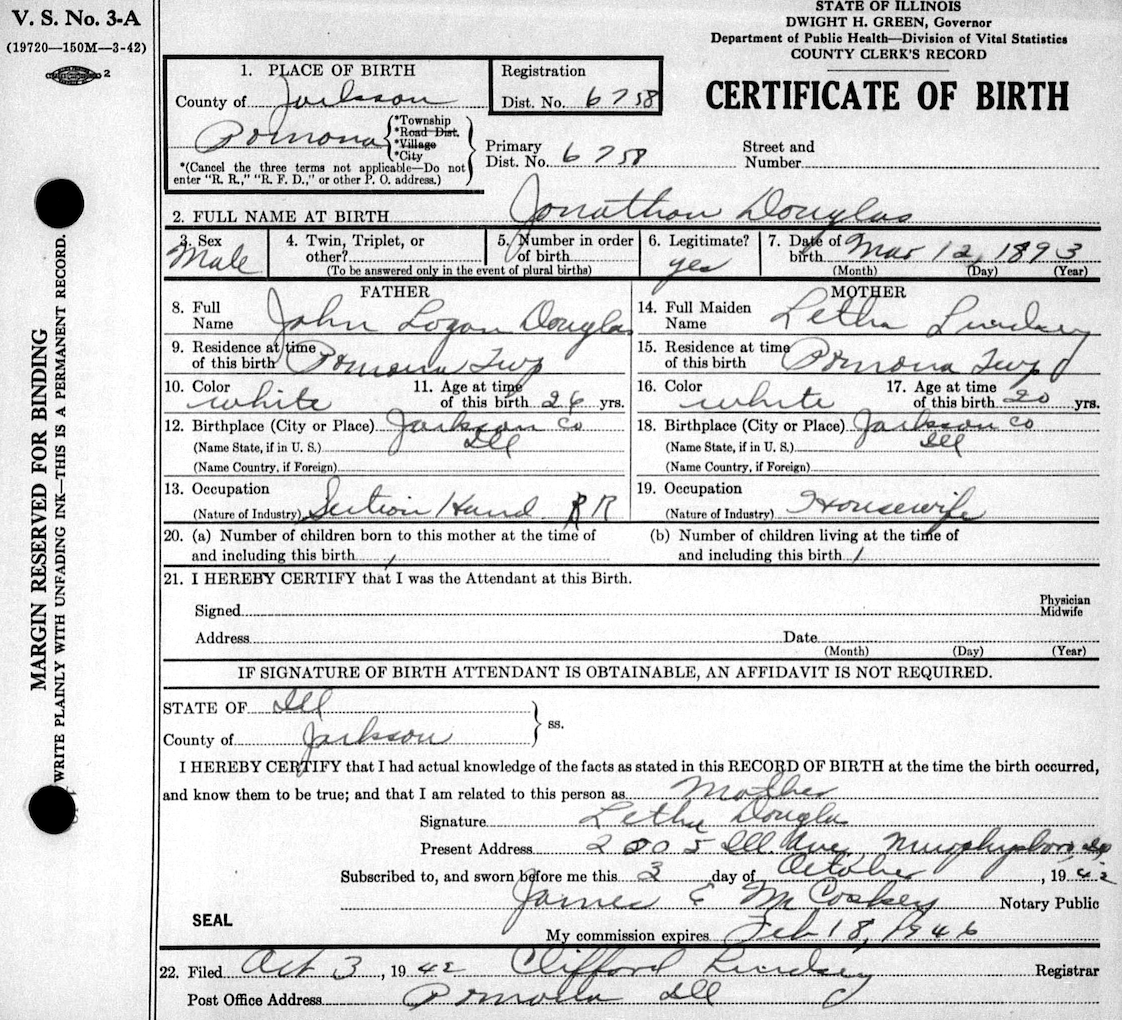 V. S. No. 3-A
(19720—150M—3-42)
2
STATE OF ILLINOIS
DWIGHT H. GREEN, Governor
Department of Public Health—Division of Vital Statistics
COUNTY CLERK'S RECORD
CERTIFICATE OF BIRTH
1. PLACE OF BIRTH
County of Jackson
Pomona
*Township
*Road Dist.
*Village
*City
*(Cancel the three terms not applicable—Do not
enter "R. R.," "R. F. D.," or other P. O. address.)
Registration
Dist. No. 6758
Primary
Dist. No. 6758
Street and
Number
2. FULL NAME AT BIRTH Jonathan Douglas
3. Sex
Male
4. Twin, Triplet, or
other?
5. Number in order
of birth
(To be answered only in the event of plural births)
6. Legitimate?
yes
7. Date of
birth Mar 12, 1893
(Month) (Day) (Year)
FATHER
8. Full
Name John Logan Douglas
9. Residence at time
of this birth Pomona Twp
10. Color
white
11. Age at time
of this birth 26 yrs.
12. Birthplace (City or Place) Jackson Co
(Name State, if in U. S.) Ill
(Name Country, if Foreign)
13. Occupation
(Nature of Industry) Section Hand RR
MOTHER
14. Full Maiden
Name Letha Lindsey
15. Residence at time
of this birth Pomona Twp
16. Color
white
17. Age at time
of this birth 20 yrs.
18. Birthplace (City or Place) Jackson Co
(Name State, if in U. S.) Ill
(Name Country, if Foreign)
19. Occupation
(Nature of Industry) Housewife
20. (a) Number of children born to this mother at the time of
and including this birth 1
(b) Number of children living at the time of
and including this birth 1
21. I HEREBY CERTIFY that I was the Attendant at this Birth.
Signed
Physician
Midwife
Address Date
(Month) (Day) (Year)
IF SIGNATURE OF BIRTH ATTENDANT IS OBTAINABLE, AN AFFIDAVIT IS NOT REQUIRED.
STATE OF Ill
County of Jackson
ss.
I HEREBY CERTIFY that I had actual knowledge of the facts as stated in this RECORD OF BIRTH at the time the birth occurred,
and know them to be true; and that I am related to this person as Mother
Signature Letha Douglas
Present Address 2005 Ill. Ave, Murphysboro, Ill
Subscribed to, and sworn before me this 3 day of October, 1942
James E McCoskey Notary Public
SEAL
My commission expires Feb 18, 1946
22. Filed Oct 3, 1942 Clifford Lindsey Registrar
Post Office Address Pomona Ill
MARGIN RESERVED FOR BINDING
WRITE PLAINLY WITH UNFADING INK—THIS IS A PERMANENT RECORD.